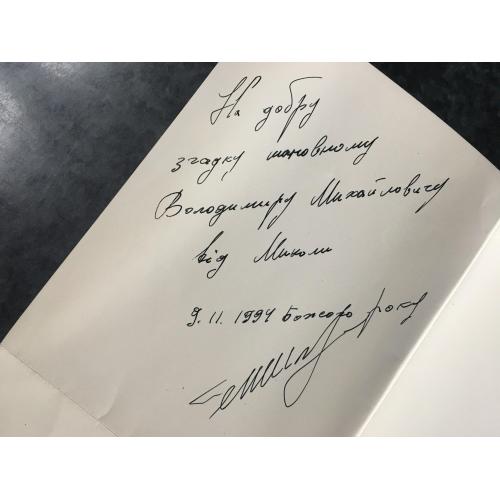 На добру
згадку шановному
Володимиру Михайловичу
від Миколи
9.11.1994 Божого року